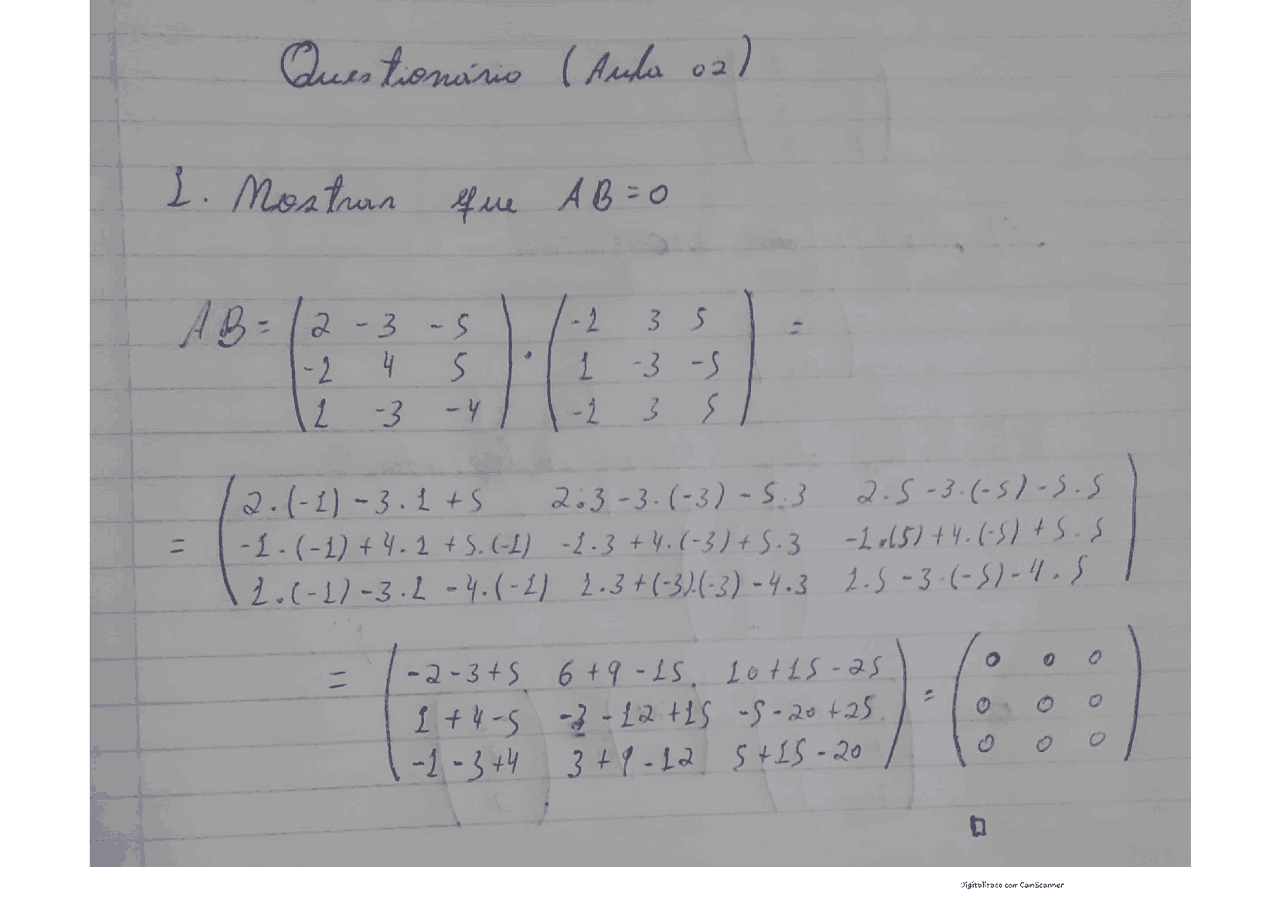 Questionário (Aula 02)
1. Mostrar que AB=0
AB= (2 -3 -5) . (-1 3 5) =
(-1 4 5) (1 -3 -5)
(1 -3 -4) (-1 3 5)
(2.(-1) -3.1 +5 2.3 -3.(-3) -5.3 2.5 -3.(-5) -5.5)
= (-1.(-1)+4.1+5.(-1) -1.3+4.(-3)+5.3 -1.(5)+4.(-5)+5.5)
(1.(-1)-3.1-4.(-1) 1.3+(-3).(-3)-4.3 1.5-3.(-5)-4.5)
= (-2-3+5 6+9-15 10+15-25) = (0 0 0)
(1+4-5 -3-12+15 -5-20+25) (0 0 0)
(-1-3+4 3+9-12 5+15-20) (0 0 0)
□
Digitalizado com CamScanner